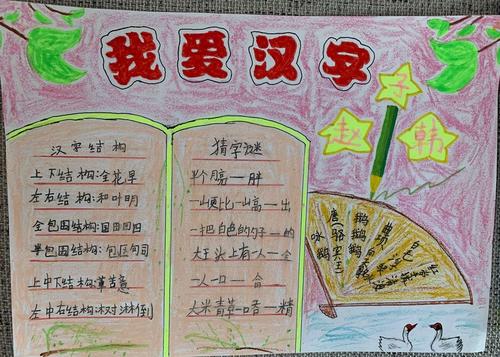 我爱汉字
子
赵
韩
汉字结构
上下结构:金花早
左右结构:和叶明
全包围结构:国田回四
半包围结构:包医句司
上中下结构:
左中右结构:冰对淋倒
猜字谜
半个月亮一胖
一山更比一山高一出
一把白色的勺子一的
大王头上有人一全
一人一口一合
大米青草一口香一精
咏鹅
唐 骆宾王
鹅鹅鹅
曲项向天歌
白毛浮绿水
红掌拨清波